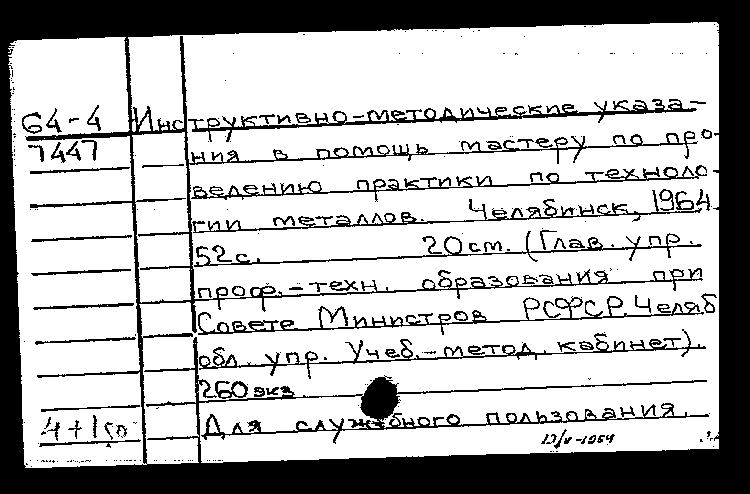 64-4 Инструктивно-методические указа-
7447 ния в помощь мастеру по про-
ведению практики по техноло-
гии металлов. Челябинск, 1964
52с. 20см. (Глав. упр.
проф.-техн. образования при
Совете Министров РСФСР. Челяб
обл. упр. Учеб.-метод. кабинет).
260 экз.
Для служебного пользования.